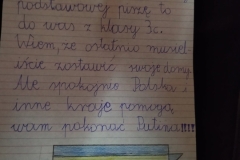 podstawowej piszę to
do was z klasy 3c.
Wiem, że ostatnio musieli-
ście zostawić swoje domy.
Ale spokojnie Polska i
inne kraje pomogą
wam pokonać Putina!!!!